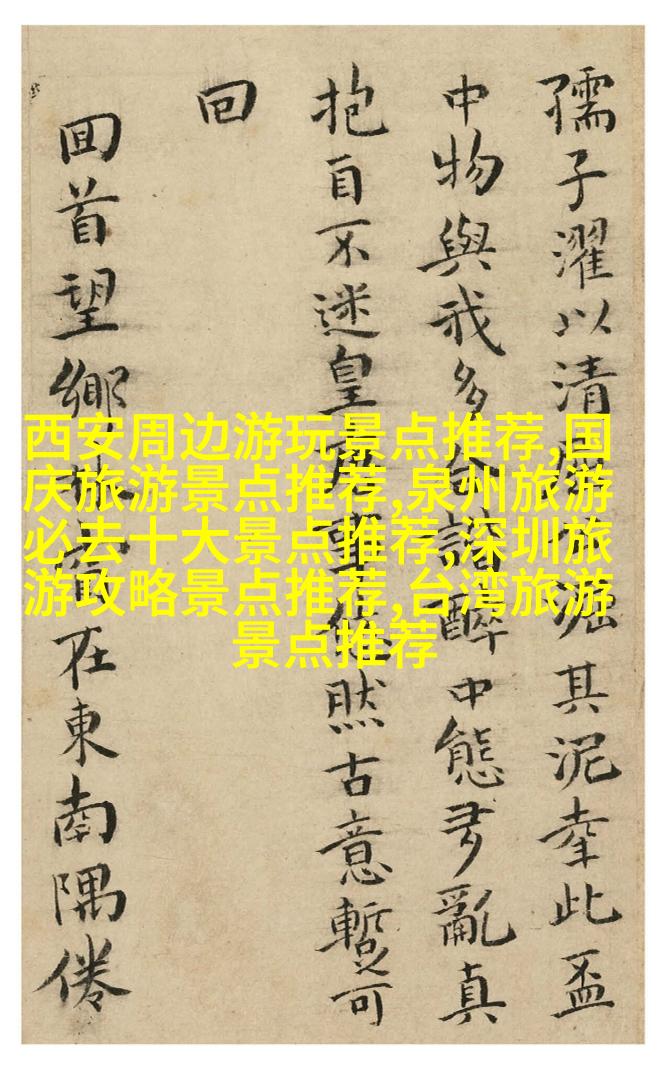 孺子濯以清其泥幸此盃
中物與我多諧醉中態亂真
抱自不迷皇悠然古意暫可
回
回首望鄉在東南隅倦
西安周边游玩景点推荐,国
庆旅游景点推荐,泉州旅游
必去十大景点推荐,深圳旅
游攻略景点推荐,台湾旅游
景点推荐